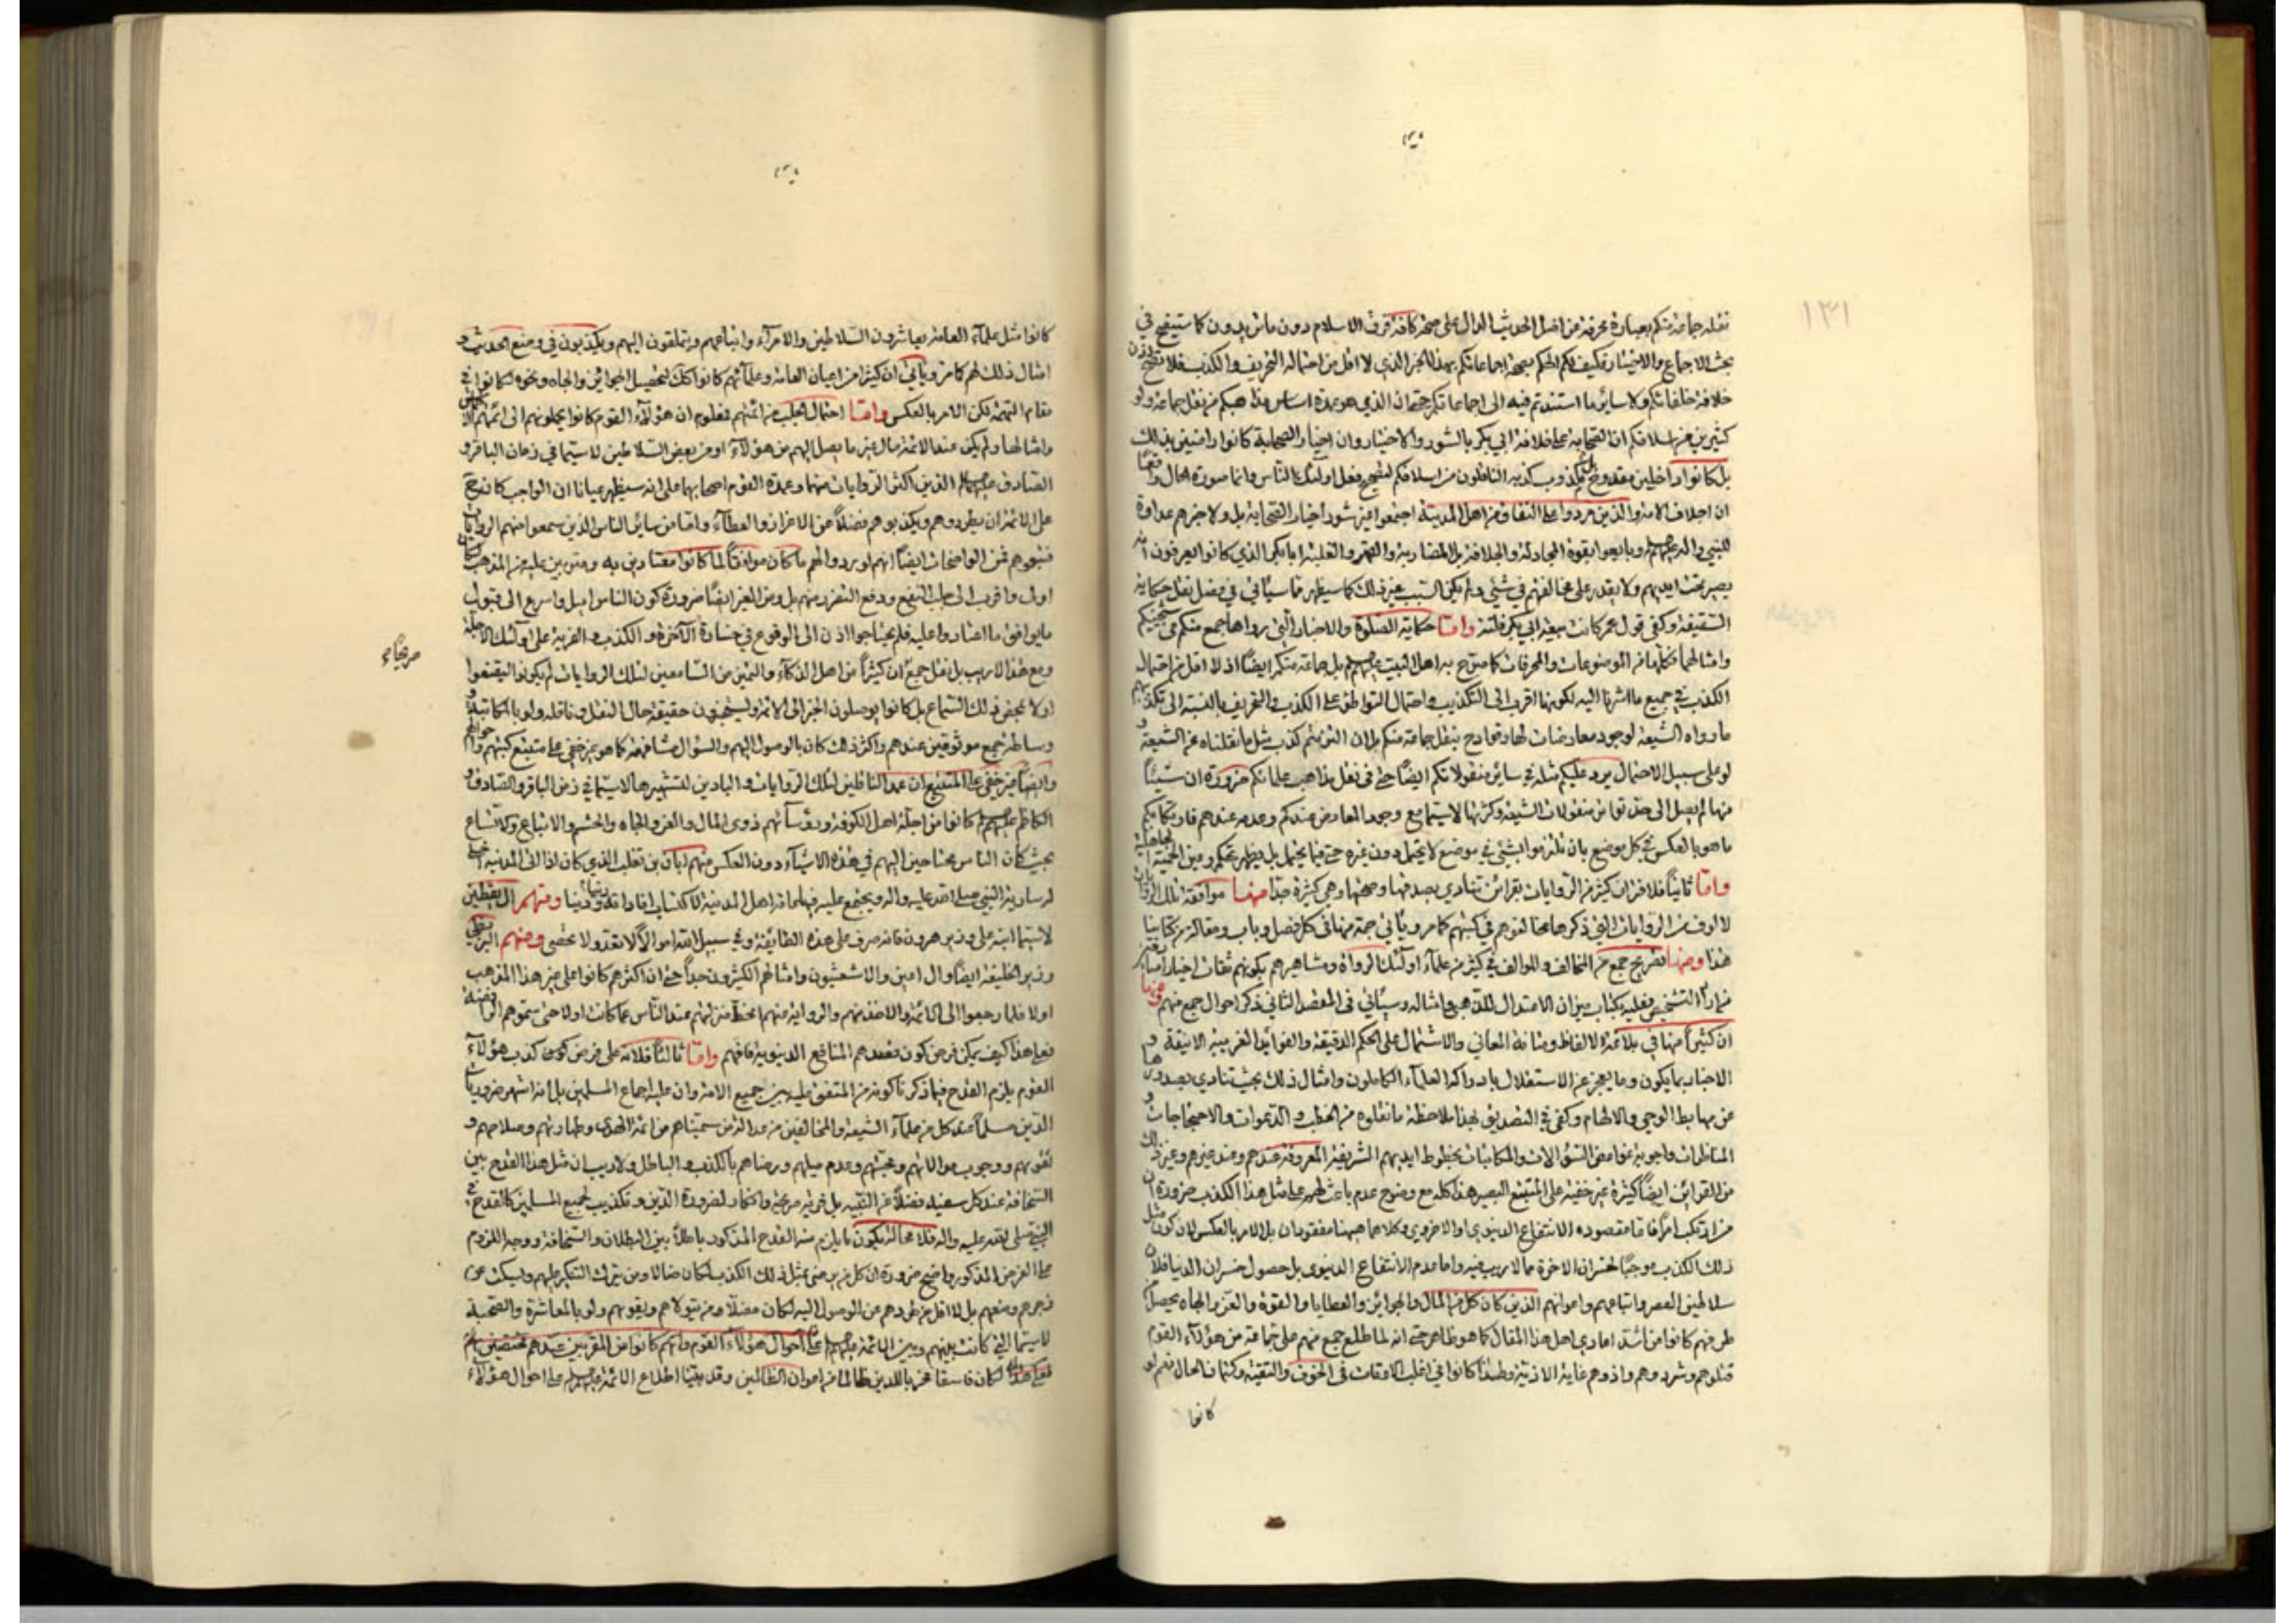 ١٣١
نقله جماعة منكم بعبارة محرفة من اصل الحديث الدال على صحة كافة فرق الاسلام دون ما تريدون كما ستيضح في
بحث الاجماع والاختيار فكيف لكم الحكم بصحة اجماعاتكم بهذا الخبر الذي لا اقل من احتماله التحريف والكذب فلا تصح اذن
خلافة خلفائكم ولا سائر ما استندتم فيه الى اجماعاتكم حتى ان الذي هو عمدة اساس مذاهبكم من نقل جماعة ولو
كثيرين من اسلافكم ان الصحابة على خلافة ابي بكر بالشور والاختيار وان اخيار الصحابة كانوا راضين بذلك
بل كانوا داخلين كذب به الناقلون من اسلافكم لتصحيح فعل اولئك الناس وانما صورة الحال واقعا
ان اجلاف الامة والذين مردوا على النفاق من اهل المدينة اجتمعوا من غير شور اخيار الصحابة بل ولا خبرهم عداوة
للنبي وآله وبايعوا بقوة المجادلة والجلافة بل المضاربة والقهر والغلبة ابا بكر الذي كانوا يعرفون انه
يصير تحت ايديهم ولا يقدر على مخالفتهم في شئ ولم يكن السبب غير ذلك كما سيظهر مما سيأتي في فصل نقل حكاية
السقيفة وكفى قول عمر كانت بيعة ابي بكر فلتة واما حكاية الصلوة والاخبار التي رواها جمع منكم في شيخيكم
وامثالهما فكلها من الموضوعات والمحرفات كما صرح به اهل البيت بل جماعة منكم ايضا اذ لا اقل من احتمال
الكذب في جميع ما اشرنا اليه لكونها اقرب الى التكذيب واحتمال التواطؤ على الكذب والتحريف بالنسبة الى تكذيبهم
ما رواه الشيعة لوجود معارضات لها وقوادح بنقل جماعة منكم ان التزمتم كذب مثل ما نقلناه عن الشيعة و
لو على سبيل الاحتمال يرد عليكم مثله في سائر منقولاتكم ايضا حتى في نقل مذاهب علمائكم ضرورة ان شيئا
منها لم يصل الى حد تواتر منقولات الشيعة وكثرتها لاسيما مع وجود المعارض عندكم وعدمه عندهم فارتكابكم
ما هو بالعكس في كل موضع بان تلتزموا بشئ في موضع لا يحتمل دون غيره حتى فيما يحتمل بل يظهر تحكم وعين الحمية الجاهلية
واما ثانيا فلا ان كثيرا من الروايات بقرائن تنادي بصدقها وصحتها وهي كثيرة جدا منها موافقة تلك الروايات
لالوف من الروايات التي ذكرها مخالفوهم في كتبهم كما مر ويأتي جمة منها في كل فصل وباب ومقالة من كتابنا
هذا ومنها تصريح جمع من المخالف والموالف في كثير من علماء اولئك الرواة ومشاهيرهم بكونهم ثقات اخيار
فمن اراد التشخيص فعليه بكتاب ميزان الاعتدال للذهبي وامثاله وسيأتي في الفصل الثاني ذكر احوال جمع منهم ومنها
ان كثيرا منها في بلاغة الالفاظ ومتانة المعاني والاشتمال على الحكم الدقيقة والفوائد الغريبة الانيقة و
الاخبار بما يكون وما يعجز عن الاستقلال بادراكه العلماء الكاملون وامثال ذلك بحيث تنادي بصدورها
عن مهابط الوحي والالهام وكفى في التصديق بهذا ملاحظة ما نقلوه من الخطب والدعوات والاحتجاجات و
المناظرات واجوبة غوامض السؤالات والمكاتبات بخطوط ايديهم الشريفة المعروفة عندهم وعند غيرهم وغير ذلك
من القرائن ايضا كثيرة غير خفية على المتتبع البصير هذا كله مع وضوح عدم باعث لهم على مثل هذا الكذب ضرورة ان
من ارتكب امرا فانما مقصوده الانتفاع الدنيوي او الاخروي وكلاهما ههنا مفقودان بل الامر بالعكس لان كون مثل
ذلك الكذب موجبا لخسران الاخرة مما لا ريب فيه واما عدم الانتفاع الدنيوي بل حصول خسران الدنيا فلان
سلاطين العصر واتباعهم واعوانهم الذين كان كل من المال والجوائز والعطايا والقوة والعز والجاه يحصل من
طرفهم كانوا من اشد اعادي اهل هذا المقال كما هو ظاهر حتى انه لما طلع جمع منهم على جماعة من هؤلاء القوم
قتلوهم وشردوهم واذوهم غاية الاذية ولهذا كانوا في اغلب الاوقات في الخوف والتقية وكتمان الحال نعم لو
كانوا
كانوا مثل علماء العامة يعاشرون السلاطين والامراء واتباعهم ويتملقون اليهم ويكذبون في وضع الحديث و
امثال ذلك لهم كما مر ويأتي ان كثيرا من اعيان العامة وعلمائهم كانوا كك لتحصيل الجوائز والجاه ونحوه لكانوا في
مقام التهمة لكن الامر بالعكس واما احتمال الجلب من ائمتهم فمعلوم ان هؤلاء القوم كانوا يحملونهم الى ائمتهم الاخماس
وامثالها ولم يكن عند الائمة مال غير ما يصل اليهم من هؤلاء او من بعض السلاطين لاسيما في زمان الباقر و
الصادق الذين اكثر الروايات منهما وعمدة القوم اصحابهما على انه سيظهر عيانا ان الواجب كان ح
على الائمة ان يطردوهم ويكذبوهم فضلا عن الاعزاز والعطاء واما من سائر الناس الذين سمعوا منهم الروايات
فتبعوهم فمن الواضحات ايضا انهم لو رووا لهم ما كان موافقا لما كانوا معتادين به ومتدينين عليه من المذهب لكان
اولى واقرب الى جلب النفع ودفع الضرر منهم بل ومن الغير ايضا ضرورة كون الناس اميل واسرع الى قبول
ما يوافق ما اعتادوا عليه فلم يحتاجوا اذن الى الوقوع في خسارة الآخرة والكذب والفرية على اولئك الاجلة
صريحا
ومع هذا لا ريب بل نقل جمع ان كثيرا من اهل الذكاء والتميز من السامعين لتلك الروايات لم يكونوا ليقنعوا
اولا بمحض ذلك السماع بل كانوا يوصلون الخبر الى الائمة ويستخبرون حقيقة حال النقل وناقله ولو بالمكاتبة و
وساطة جمع موثوقين عندهم واكثر ذلك كان بالوصول اليهم والسؤال مشافهة كما هو غير خفي على متتبع كتبهم واحوالهم
وايضا غير خفي على المتتبع ان عمد الناقلين لتلك الروايات والبادين لتشهيرها لاسيما في زمن الباقر والصادق و
الكاظم كانوا من اجلة اهل الكوفة ورؤسائهم ذوي المال والعز والجاه والحشم والاتباع والاتساع
بحيث كان الناس محتاجين اليهم في هذه الاشياء دون العكس منهم ابان بن تغلب الذي كان اذا اتى المدينة اخليت
له سارية النبي صلى الله عليه وآله ويجتمع عليه فهماء اهل المدينة لاكتساب افاداته دينا ودنيا ومنهم ال يقطين
لاسيما ابنه علي وزير هرون فانه صرف على هذه الطائفة وفي سبيل الله اموالا لا تعد ولا تحصى ومنهم
وزير الخليفة ايضا وال اعين والاشعثيون وامثالهم الكثيرون جدا حتى ان اكثرهم كانوا على غير هذا المذهب
اولا فلما رجعوا الى الائمة والاخذ منهم والرواية منهم انحط منزلتهم عند الناس عما كانت اولا حتى سموهم الرافضة
فعلى هذا كيف يمكن فرض كون مقصدهم المنافع الدنيوية فافهم واما ثالثا فلانه على فرض كون كذب هؤلاء
القوم يلزم القدح فيما ذكرنا كونه من المتفق عليه بين جميع الامة وان عليه اجماع المسلمين بل انه اشتهر ضروريات
الدين مسلما عند كل من علماء الشيعة والمخالفين من عدالة من سميناهم من ائمة الهدى وطهارتهم وصلاحهم و
تقويهم ووجوب موالاتهم ومحبتهم وعدم ميلهم ورضاهم بالكذب والباطل ولا ريب ان مثل هذا القدح بين
السخافة عند كل سفيه فضلا عن النبيه بل فرية صريحة وانكار لضرورة الدين وتكذيب لجميع المسلمين كالقدح في
النبي صلى الله عليه وآله فلا محالة يكون ما يلزم منه القدح المذكور باطلا بين البطلان والسخافة ووجه اللزوم
على الفرض المذكور واضح ضرورة ان كل من رضي بمثل ذلك الكذب لكان ضالا ومن يترك التنكير عليهم ويسكت عن
زجرهم ومنعهم بل لا اقل من طردهم عن الوصول اليه لكان مضلا ومن يتولاهم ويقويهم ولو بالمعاشرة والصحبة
لاسيما التي كانت بينهم وبين الائمة على احوال هؤلاء القوم وانهم كانوا من المقربين عندهم مختصين بهم
فعلى هذا لكان فاسقا مخربا للدين ظالما من اعوان الظالمين وقد بينا اطلاع الائمة على احوال هؤلاء